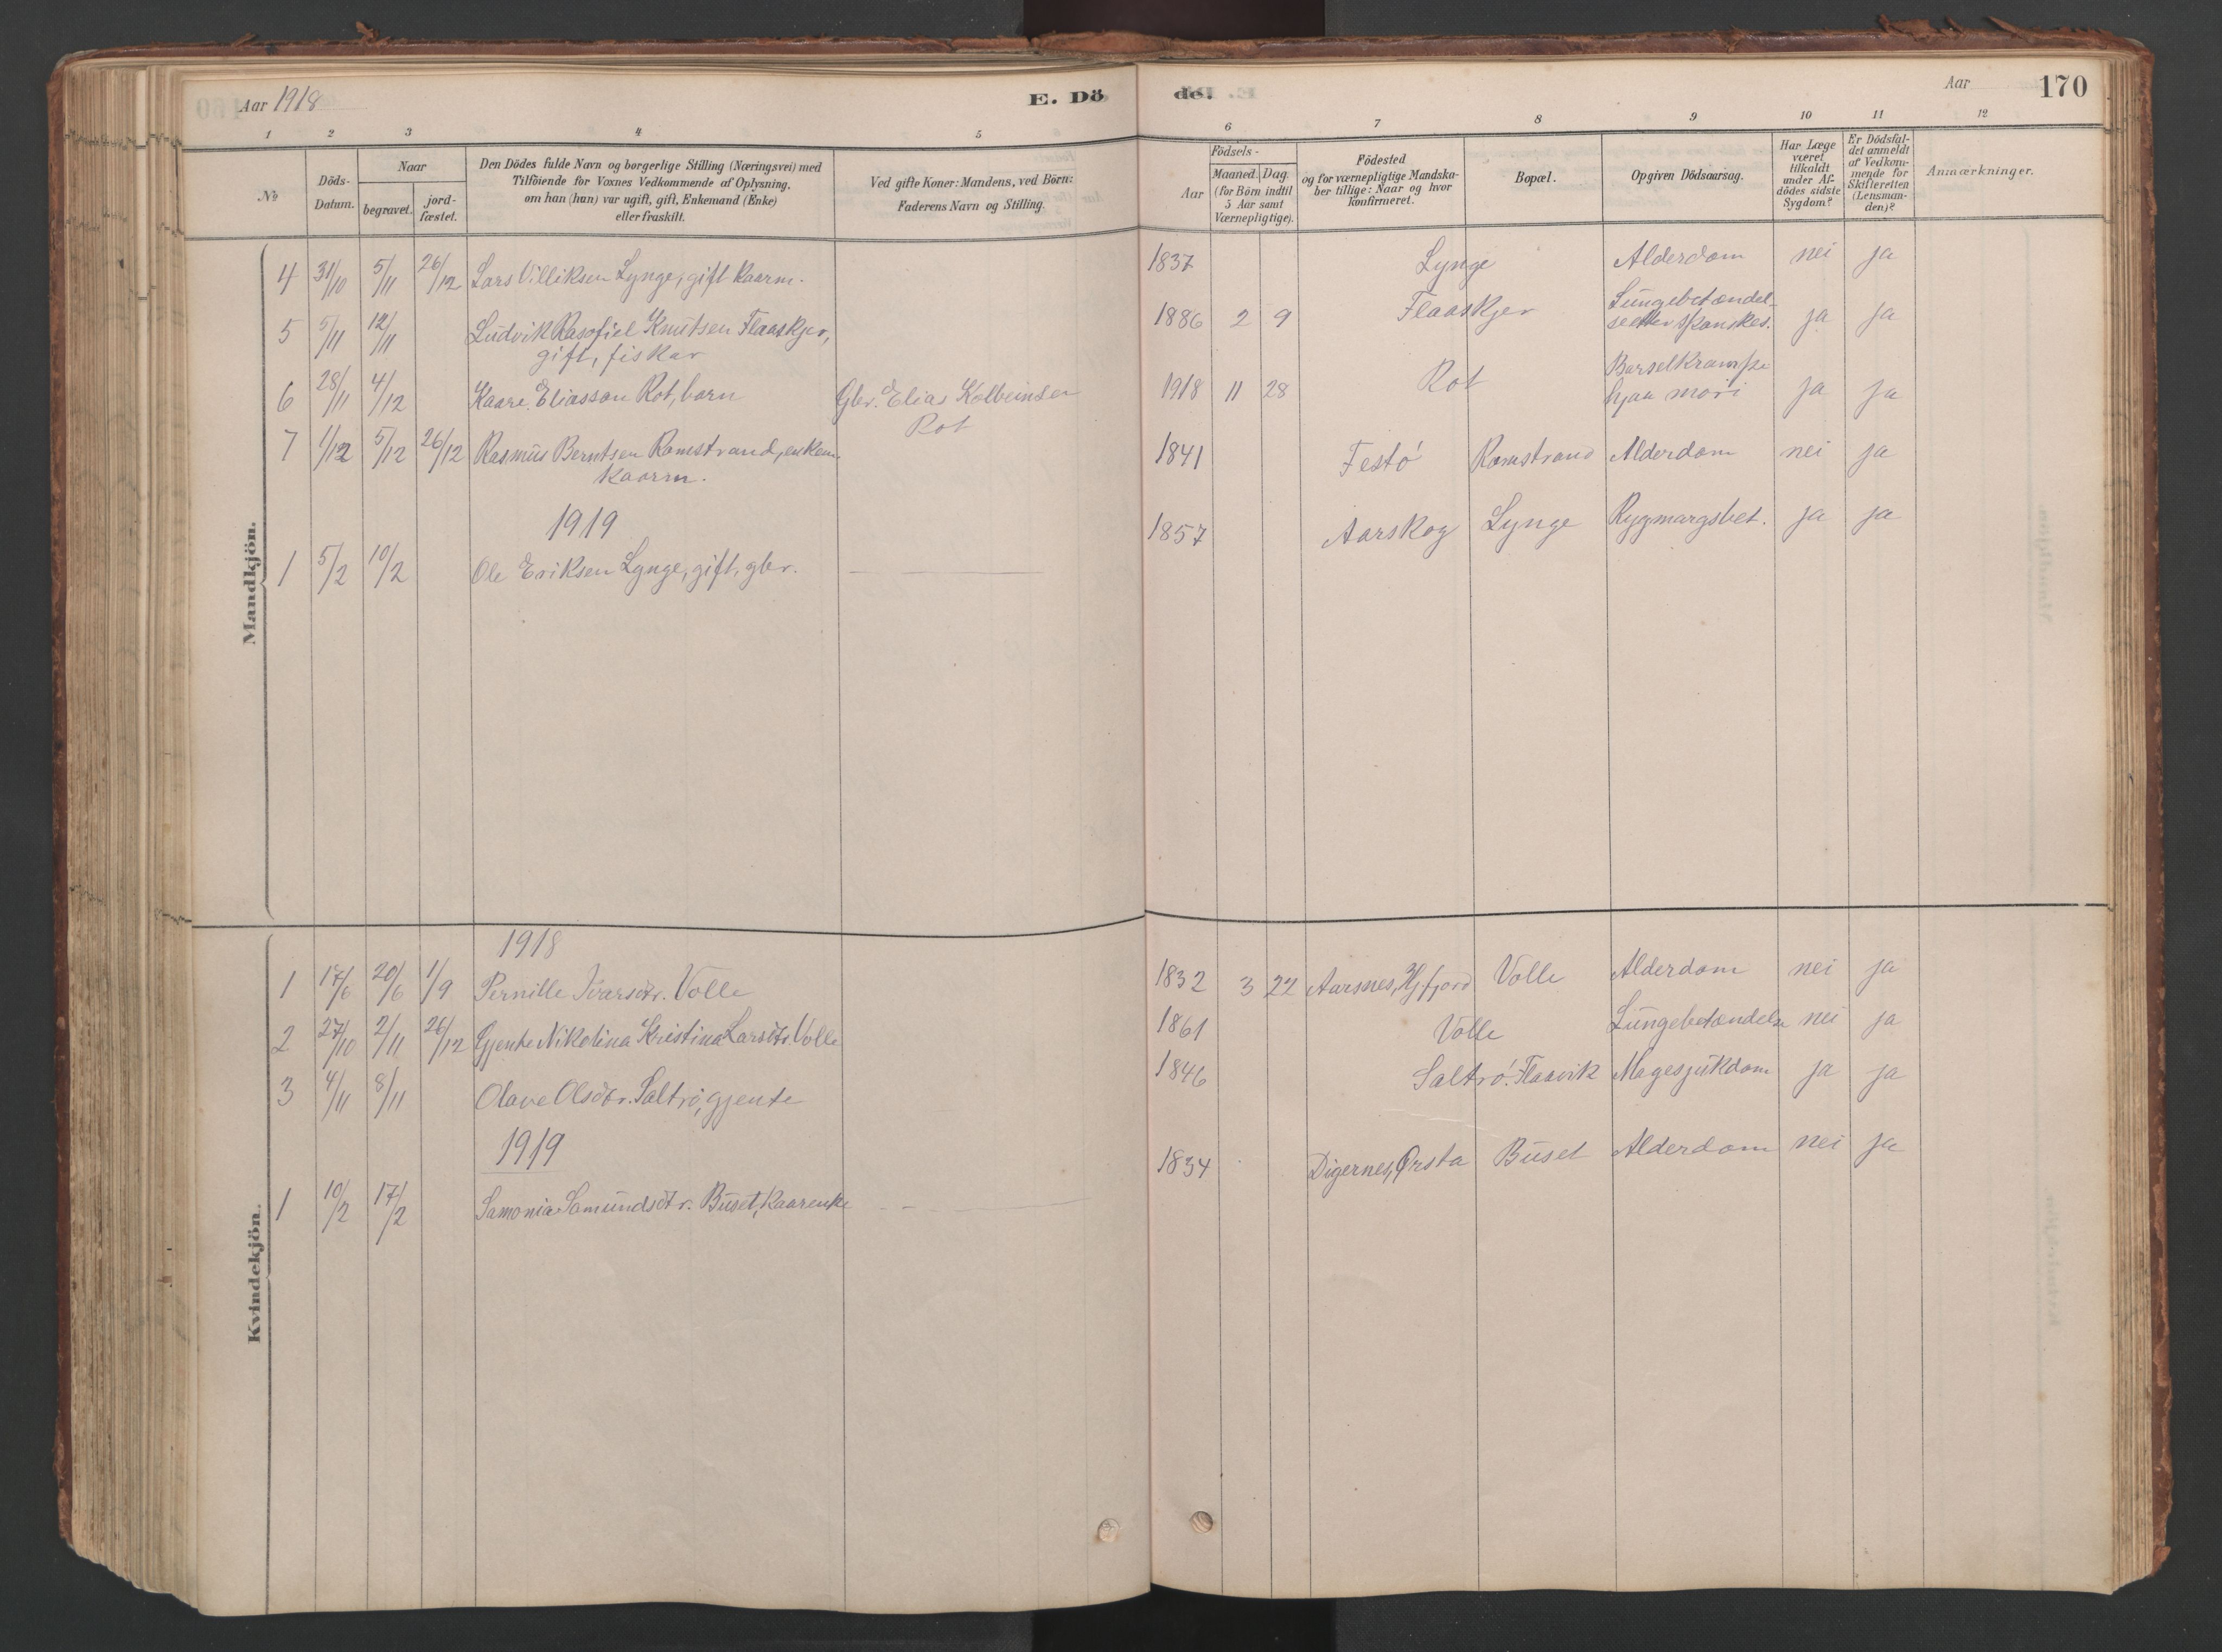 Aar 1918
E. Dö
de.
Aar
170
1 2 3 4 5 6 7 8 9 10 11 12
No
Döds-
Datum.
Naar
begravet.
jord-
fæstet.
Den Dödes fulde Navn og borgerlige Stilling (Næringsvei) med
Tilföiende for Voxnes Vedkommende af Oplysning,
om han (hun) var ugift, gift, Enkemand (Enke)
eller fraskilt.
Ved gifte Koner: Mandens, ved Börn:
Faderens Navn og Stilling.
Födsels-
Aar
Maaned. Dag.
(for Börn indtil
5 Aar samt
Værnepligtige).
Födested
og for værnepligtige Mandska-
ber tillige: Naar og hvor
konfirmeret.
Bopæl.
Opgiven Dödsaarsag.
Har Læge
været
tilkaldt
under Af-
dödes sidste
Sygdom?
Er Dödsfal-
det anmeldt
af Vedkom-
mende for
Skifteretten
(Lensman-
den)?
Anmærkninger.
Mandkjön.
4 31/10 5/11 26/12 Lars Villiksen Lynge, gift kaarm. 1837 Lynge Alderdom nei ja
5 5/11 12/11 Ludvik Rasofiel Knutsen Flaaskjer, 1886 2 9 Flaaskjer Lungebetændel-
gift, fiskar
se etter spanskes. ja ja
6 28/11 4/12 Kaare Eliasson Rot, barn Gbr. Elias Kolbeinsen 1918 11 28 Rot Barselkrampe
Rot
hjaa mori ja ja
7 1/12 5/12 26/12 Rasmus Berntsen Ramstrand, enkem. 1841 Festö Ramstrand Alderdom nei ja
kaarm.
1919
1 5/2 10/2 Ole Eriksen Lynge, gift, gbr. 1857 Aarskog Lynge Rygmargsbet. ja ja
Kvindekjön.
1918
1 17/6 20/6 1/9 Pernille Ivarsdtr. Volle 1832 3 22 Aarsnes, Hj.fjord Volle Alderdom nei ja
2 27/10 2/11 26/12 Gjente Nikolina Kristina Larsdtr. Volle 1861 Volle Lungebetændelse nei ja
3 4/11 8/11 Olave Olsdtr. Saltrö, gjente 1846 Saltrö. Flaavik Magesjukdom ja ja
1919
1 10/2 17/2 Samonia Samundsdtr. Buset, kaarenke 1834 Digernes, Ørsta Buset Alderdom nei ja